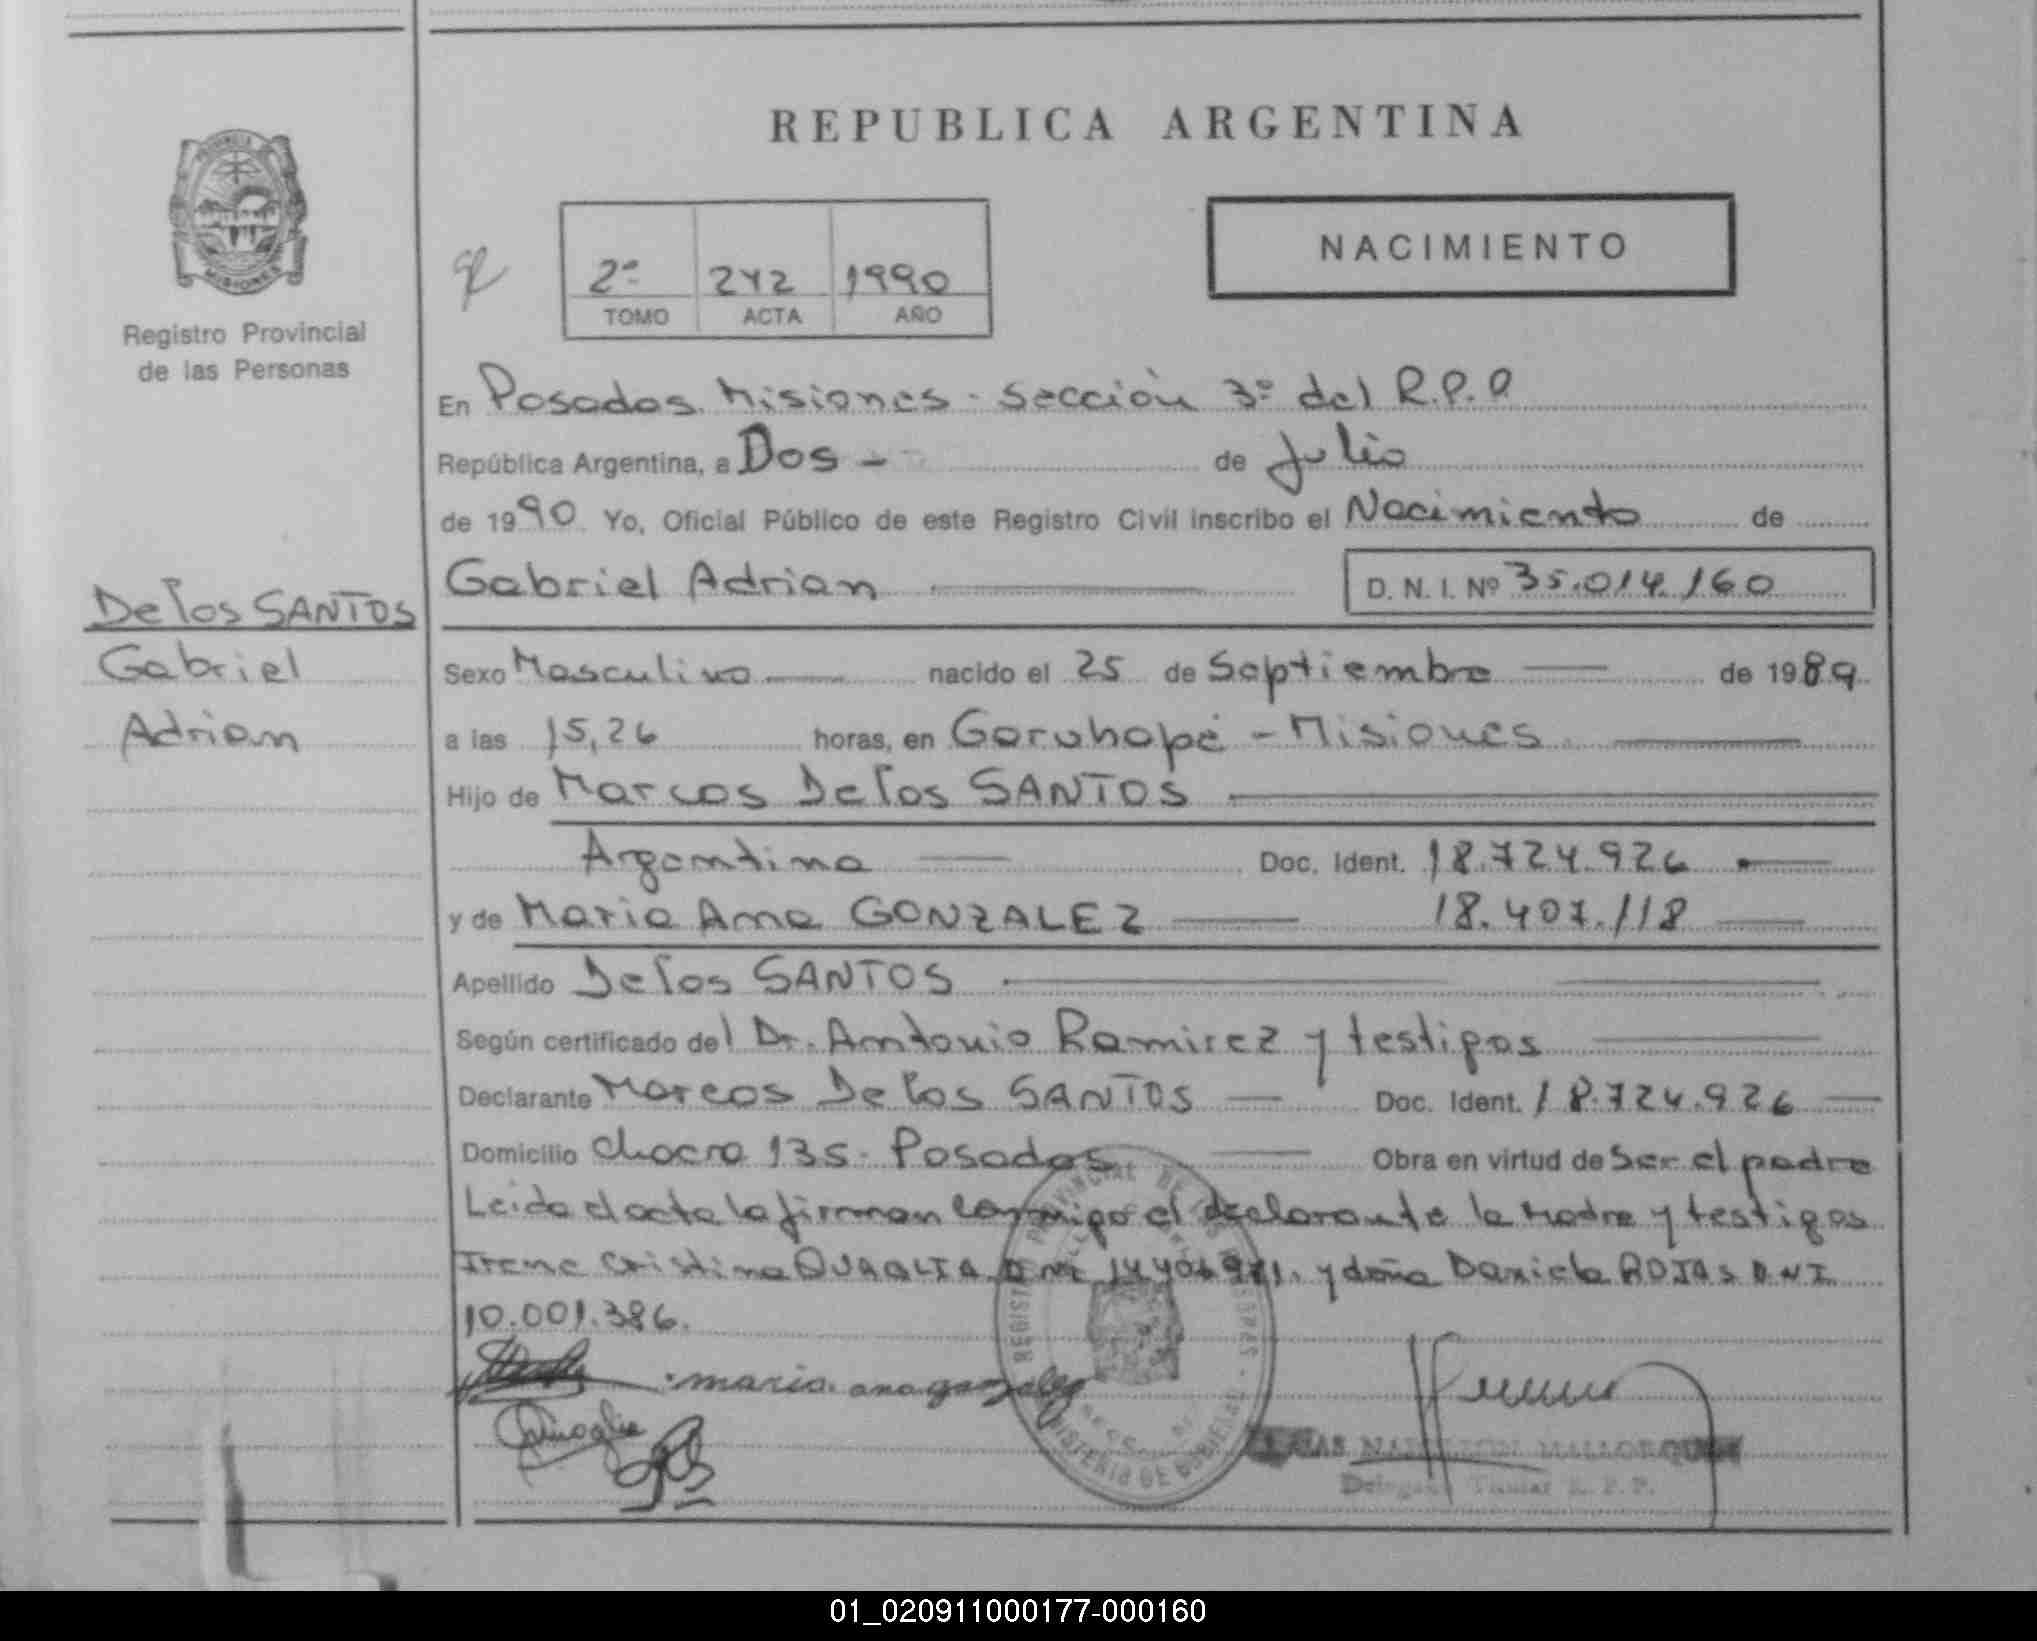 REPUBLICA ARGENTINA
PROVINCIA
MISIONES
Registro Provincial
de las Personas
2º 242 1990
TOMO ACTA AÑO
NACIMIENTO
En Posadas Misiones - Sección 3º del R.P.P
República Argentina, a Dos - de Julio
de 1990 Yo, Oficial Público de este Registro Civil inscribo el Nacimiento de
Gabriel Adrian D. N. I. Nº 35.014.160
De los SANTOS
Gabriel
Adrian
Sexo Masculino nacido el 25 de Septiembre de 1989
a las 15,26 horas, en Garuhapé - Misiones
Hijo de Marcos De los SANTOS
Argentina Doc. Ident. 18.724.926
y de Maria Ana GONZALEZ 18.407.118
Apellido De los SANTOS
Según certificado del Dr. Antonio Ramirez y testigos
Declarante Marcos De los SANTOS Doc. Ident. 18.724.926
Domicilio Chacra 135 - Posadas Obra en virtud de Ser el padre
Leida el acta la firman conmigo el declarante la Madre y testigos
Irene Cristina QUAGLIA D.N.I. y doña Daniela ROJAS D.N.I.
10.001.386.
maria ana gonzalez
REGISTRO PROVINCIAL DE LAS PERSONAS
MINISTERIO DE GOBIERNO
NAPOLEON MALLORQUIN
Delegado Titular R. P. P.
01_020911000177-000160